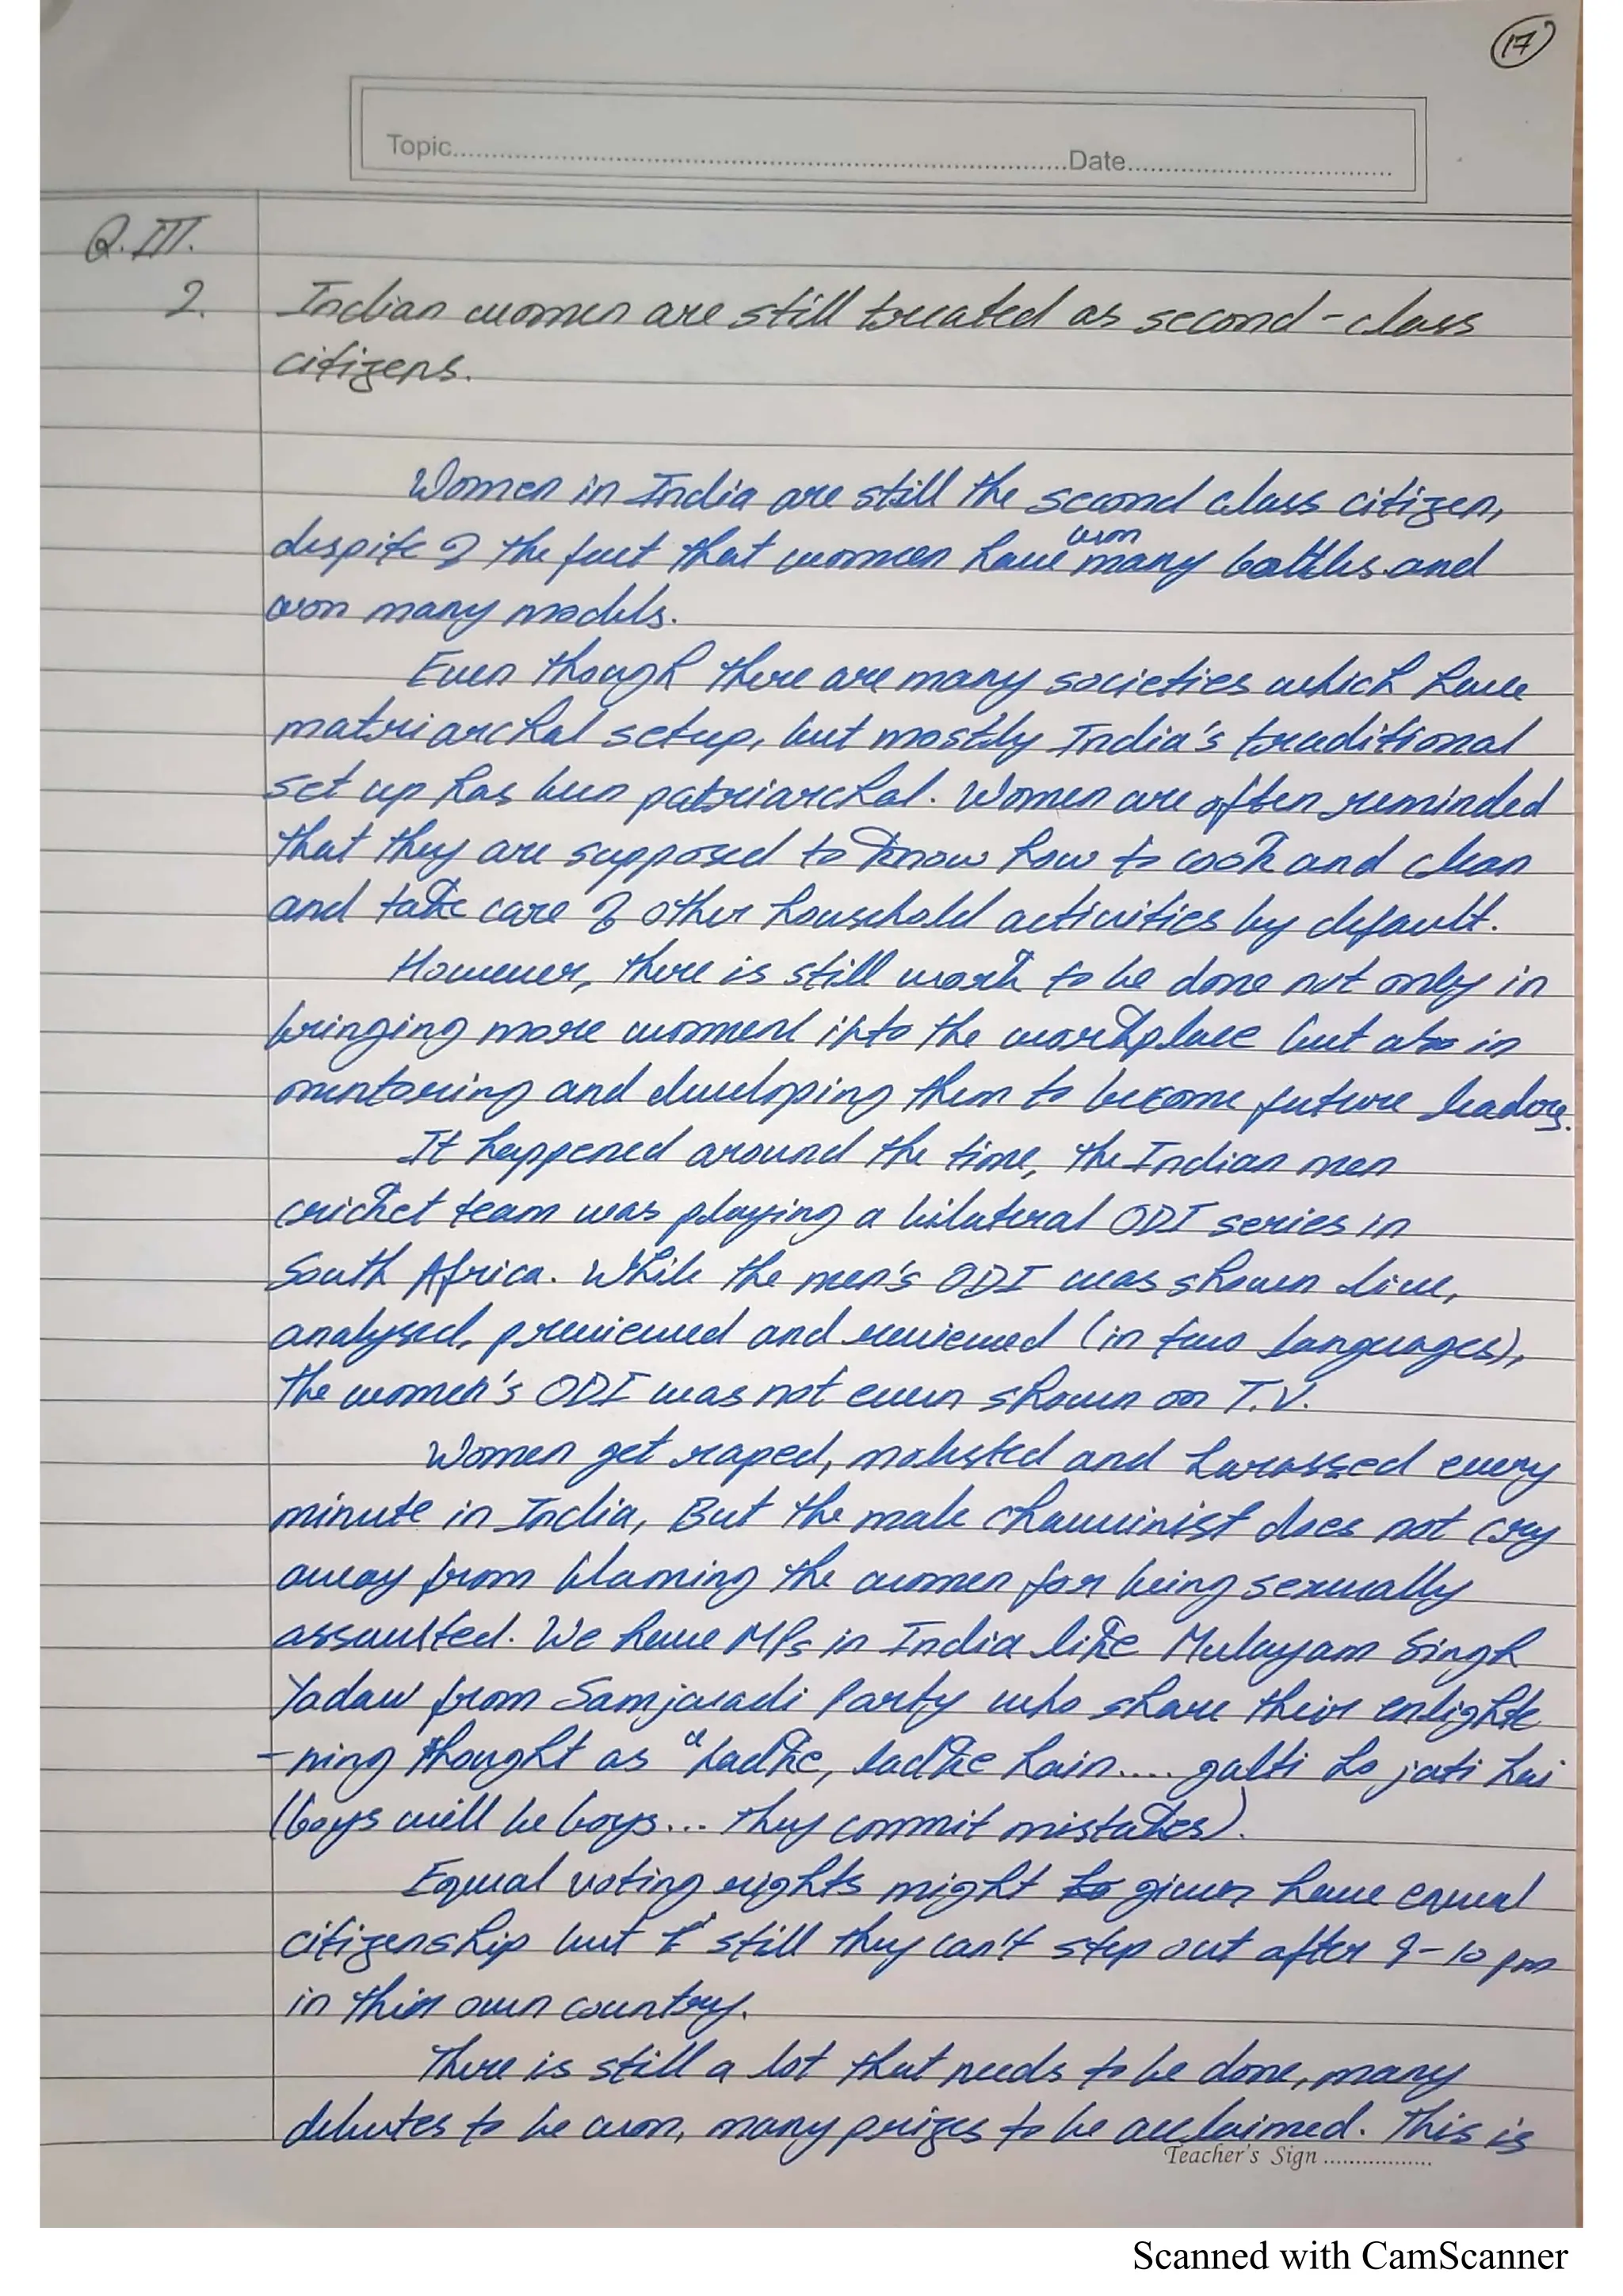 17
Topic..........Date..........
Q.III.
2. Indian women are still treated as second-class
citizens.
Women in India are still the second class citizen,
despite of the fact that women have won many battles and
won many medels.
Even though there are many societies which have
matriarchal setup, but mostly India's traditional
set up has been patriarchal. Women are often reminded
that they are supposed to know how to cook and clean
and take care of other household activities by default.
However, there is still work to be done not only in
bringing more women into the workplace but also in
mentoring and developing them to become future leaders.
It happened around the time, the Indian men
cricket team was playing a bilateral ODI series in
South Africa. While the men's ODI was shown live,
analysed, previewed and reviewed (in two languages),
the women's ODI was not even shown on T.V.
Women get raped, molested and harassed every
minute in India, But the male chauvinist does not cry
away from blaming the women for being sexually
assaulted. We have MPs in India like Mulayam Singh
Yadaw from Samjwadi Party who share their enlighte
-ning thought as "ladke, ladke hain.... galti ho jati hai
(boys will be boys... they commit mistakes).
Equal voting rights might given have equal
citizenship but still they can't step out after 9-10 pm
in their own country.
There is still a lot that needs to be done, many
debates to be won, many prizes to be acclaimed. This is
Teacher's Sign ..........
Scanned with CamScanner